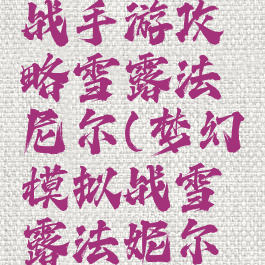 战手游攻
略雪露法
尼尔(梦幻
模拟战雪
露法妮尔